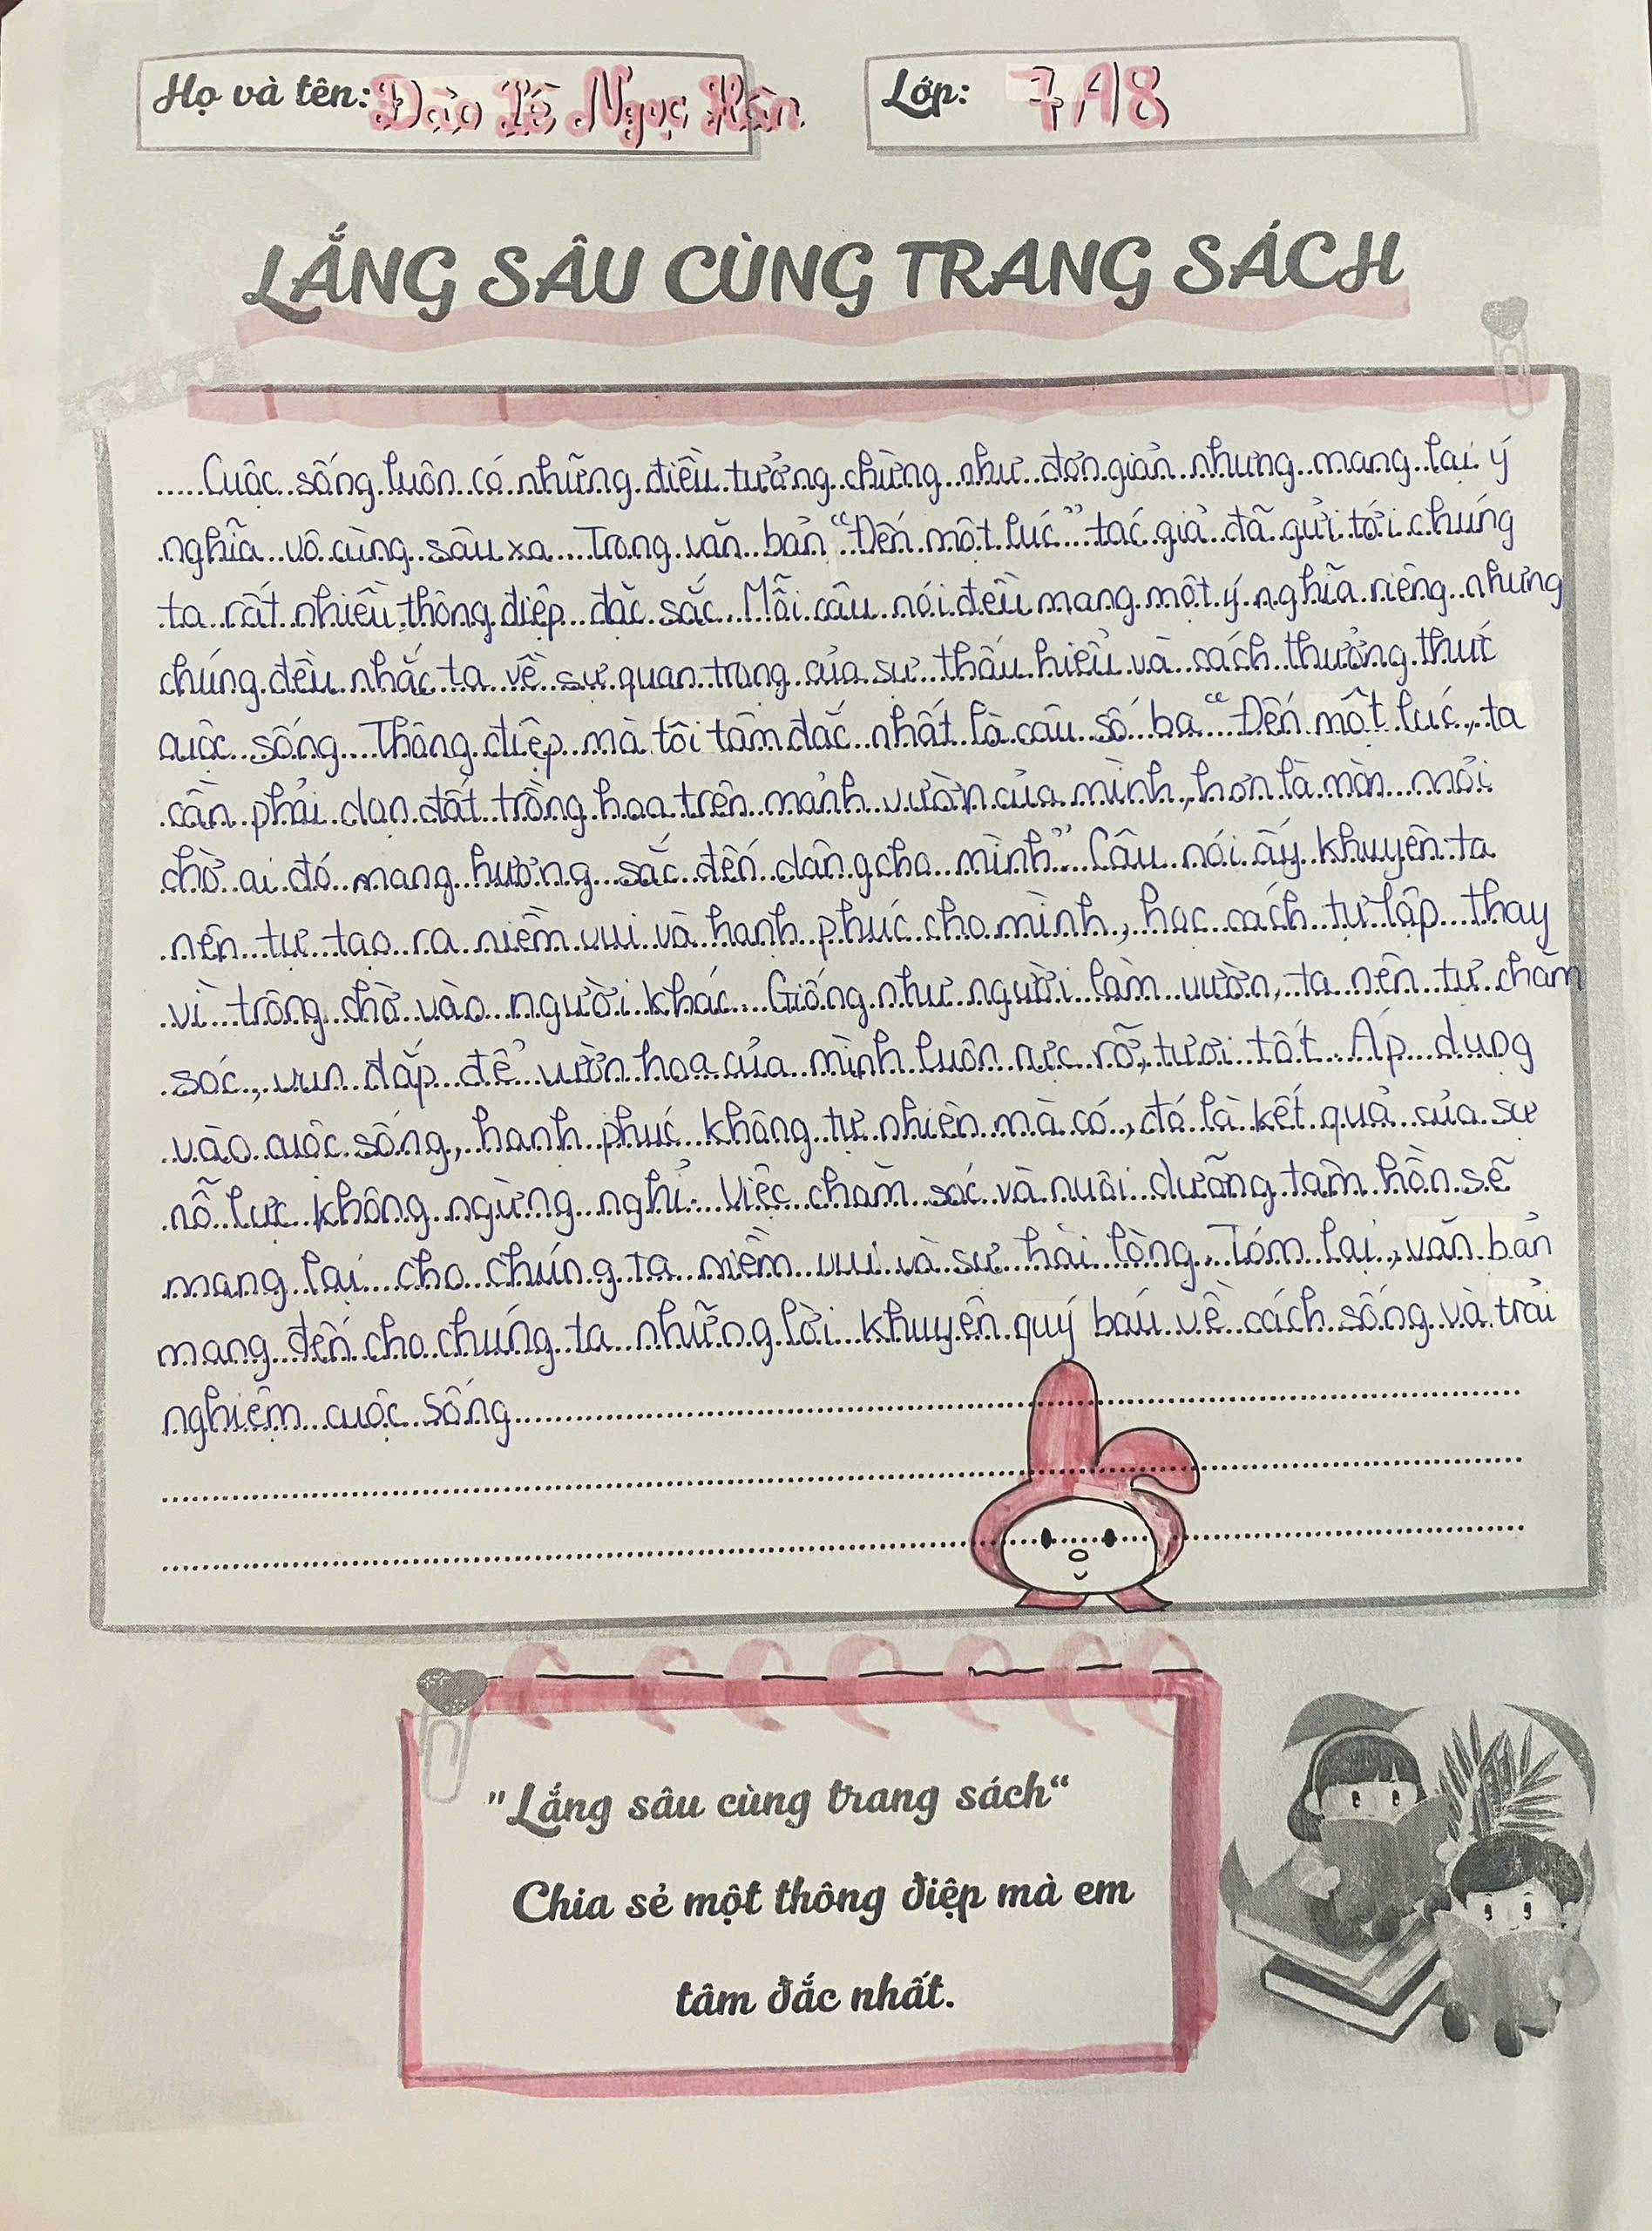 Họ và tên: Đào Lê Ngọc Hân
Lớp: 7A8
LẮNG SÂU CÙNG TRANG SÁCH
Cuộc sống luôn có những điều tưởng chừng như đơn giản nhưng mang lại ý
nghĩa vô cùng sâu xa. Trong văn bản "Đến một lúc" tác giả đã gửi tới chúng
ta rất nhiều thông điệp đặc sắc. Mỗi câu nói đều mang một ý nghĩa riêng nhưng
chúng đều nhắc ta về sự quan trọng của sự thấu hiểu và cách thưởng thức
cuộc sống. Thông điệp mà tôi tâm đắc nhất là câu số ba "Đến một lúc, ta
cần phải dọn đất trồng hoa trên mảnh vườn của mình, hơn là mòn mỏi
chờ ai đó mang hương sắc đến dâng cho mình" Câu nói ấy khuyên ta
nên tự tạo ra niềm vui và hạnh phúc cho mình, học cách tự lập thay
vì trông chờ vào người khác. Giống như người làm vườn, ta nên tự chăm
sóc, vun đắp để vườn hoa của mình luôn rực rỡ, tươi tốt. Áp dụng
vào cuộc sống, hạnh phúc không tự nhiên mà có, đó là kết quả của sự
nỗ lực không ngừng nghỉ. Việc chăm sóc và nuôi dưỡng tâm hồn sẽ
mang lại cho chúng ta niềm vui và sự hài lòng. Tóm lại, văn bản
mang đến cho chúng ta những lời khuyên quý báu về cách sống và trải
nghiệm cuộc sống
"Lắng sâu cùng trang sách“
Chia sẻ một thông điệp mà em
tâm đắc nhất.